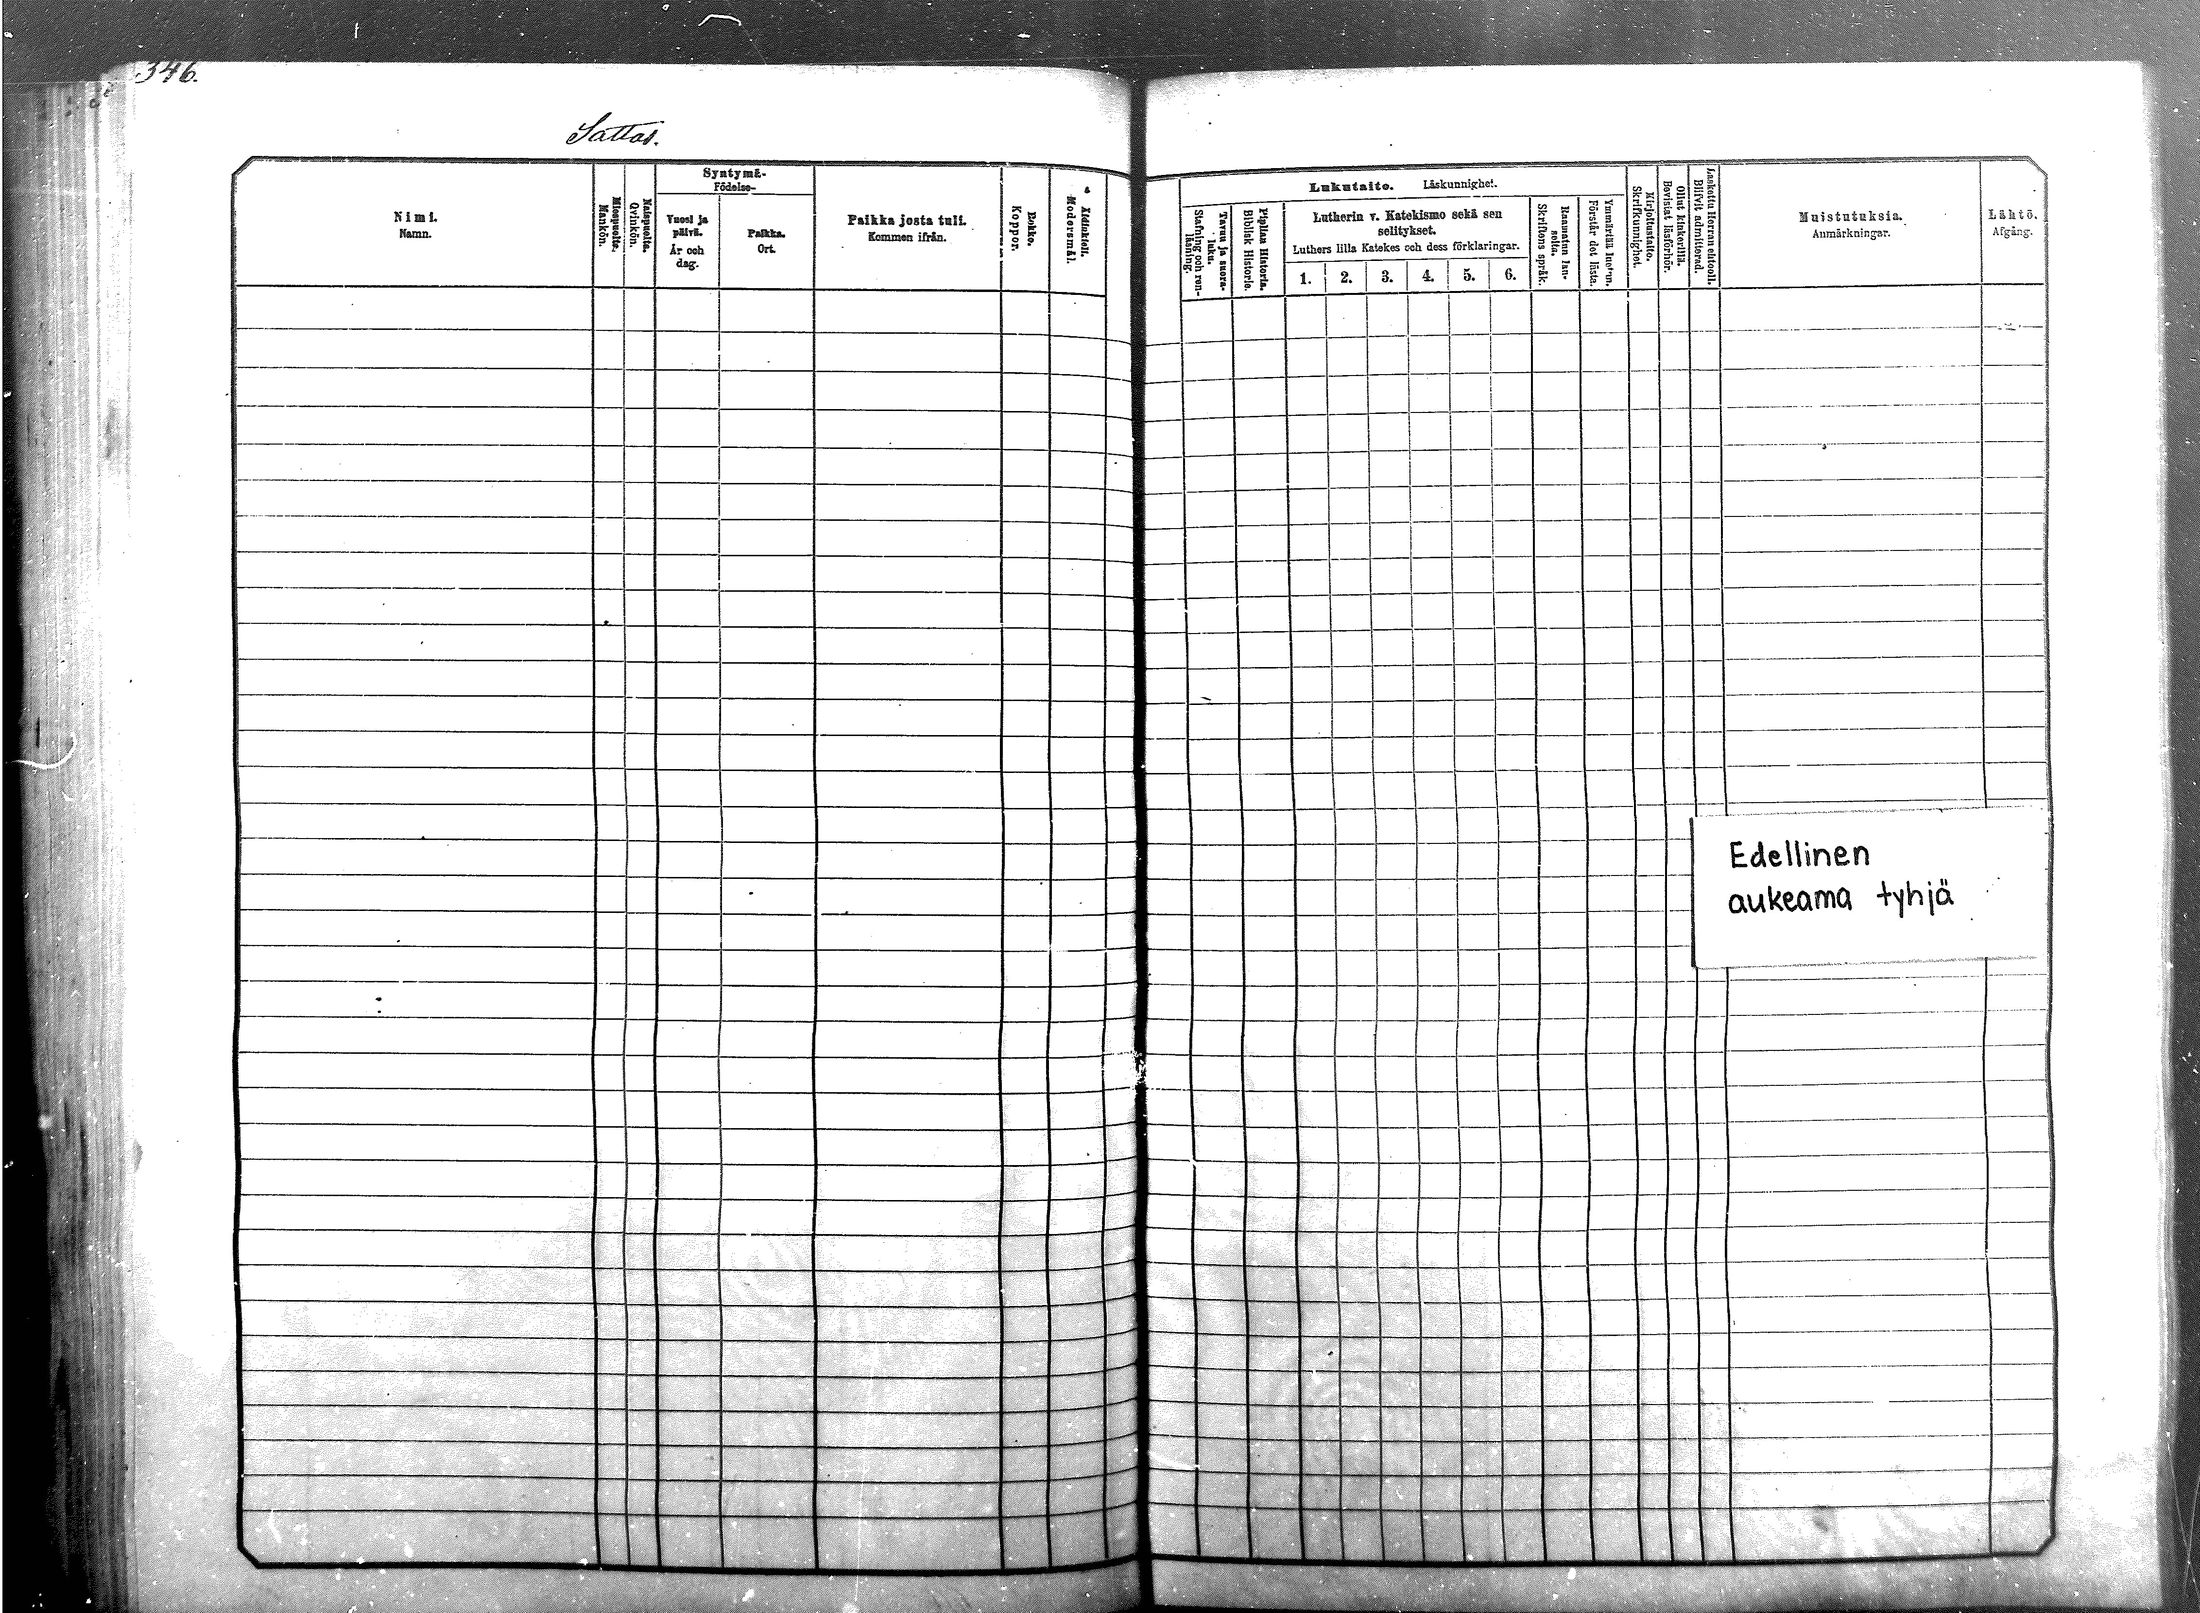 346.
Sattas.
Nimi.
Namn.
Miespuolia.
Mankön.
Naispuolia.
Qvinkön.
Syntymä-
Födelse-
Vuosi ja
päivä.
År och
dag.
Paikka.
Ort.
Paikka josta tuli.
Kommen ifrån.
Rokko.
Koppor.
Äidinkieli.
Modersmål.
Lukutaito. Läskunnighet.
Tavuu ja suora-
luku.
Stafning och ren-
läsning.
Piplian Historia.
Biblisk Historie.
Lutherin v. Katekismo sekä sen
selitykset.
Luthers lilla Katekes och dess förklaringar.
1. 2. 3. 4. 5. 6.
Raamatun lau-
seita.
Skriftens språk.
Ymmärtää luetun.
Förstår det lästa.
Kirjoitustaito.
Skrifkunnighet.
Ollut kinkerillä.
Bevistat läsförhör.
Laskettu Herran ehtooll.
Blifvit admitterad.
Muistutuksia.
Anmärkningar.
Lähtö.
Afgång.
Edellinen
aukeama tyhjä